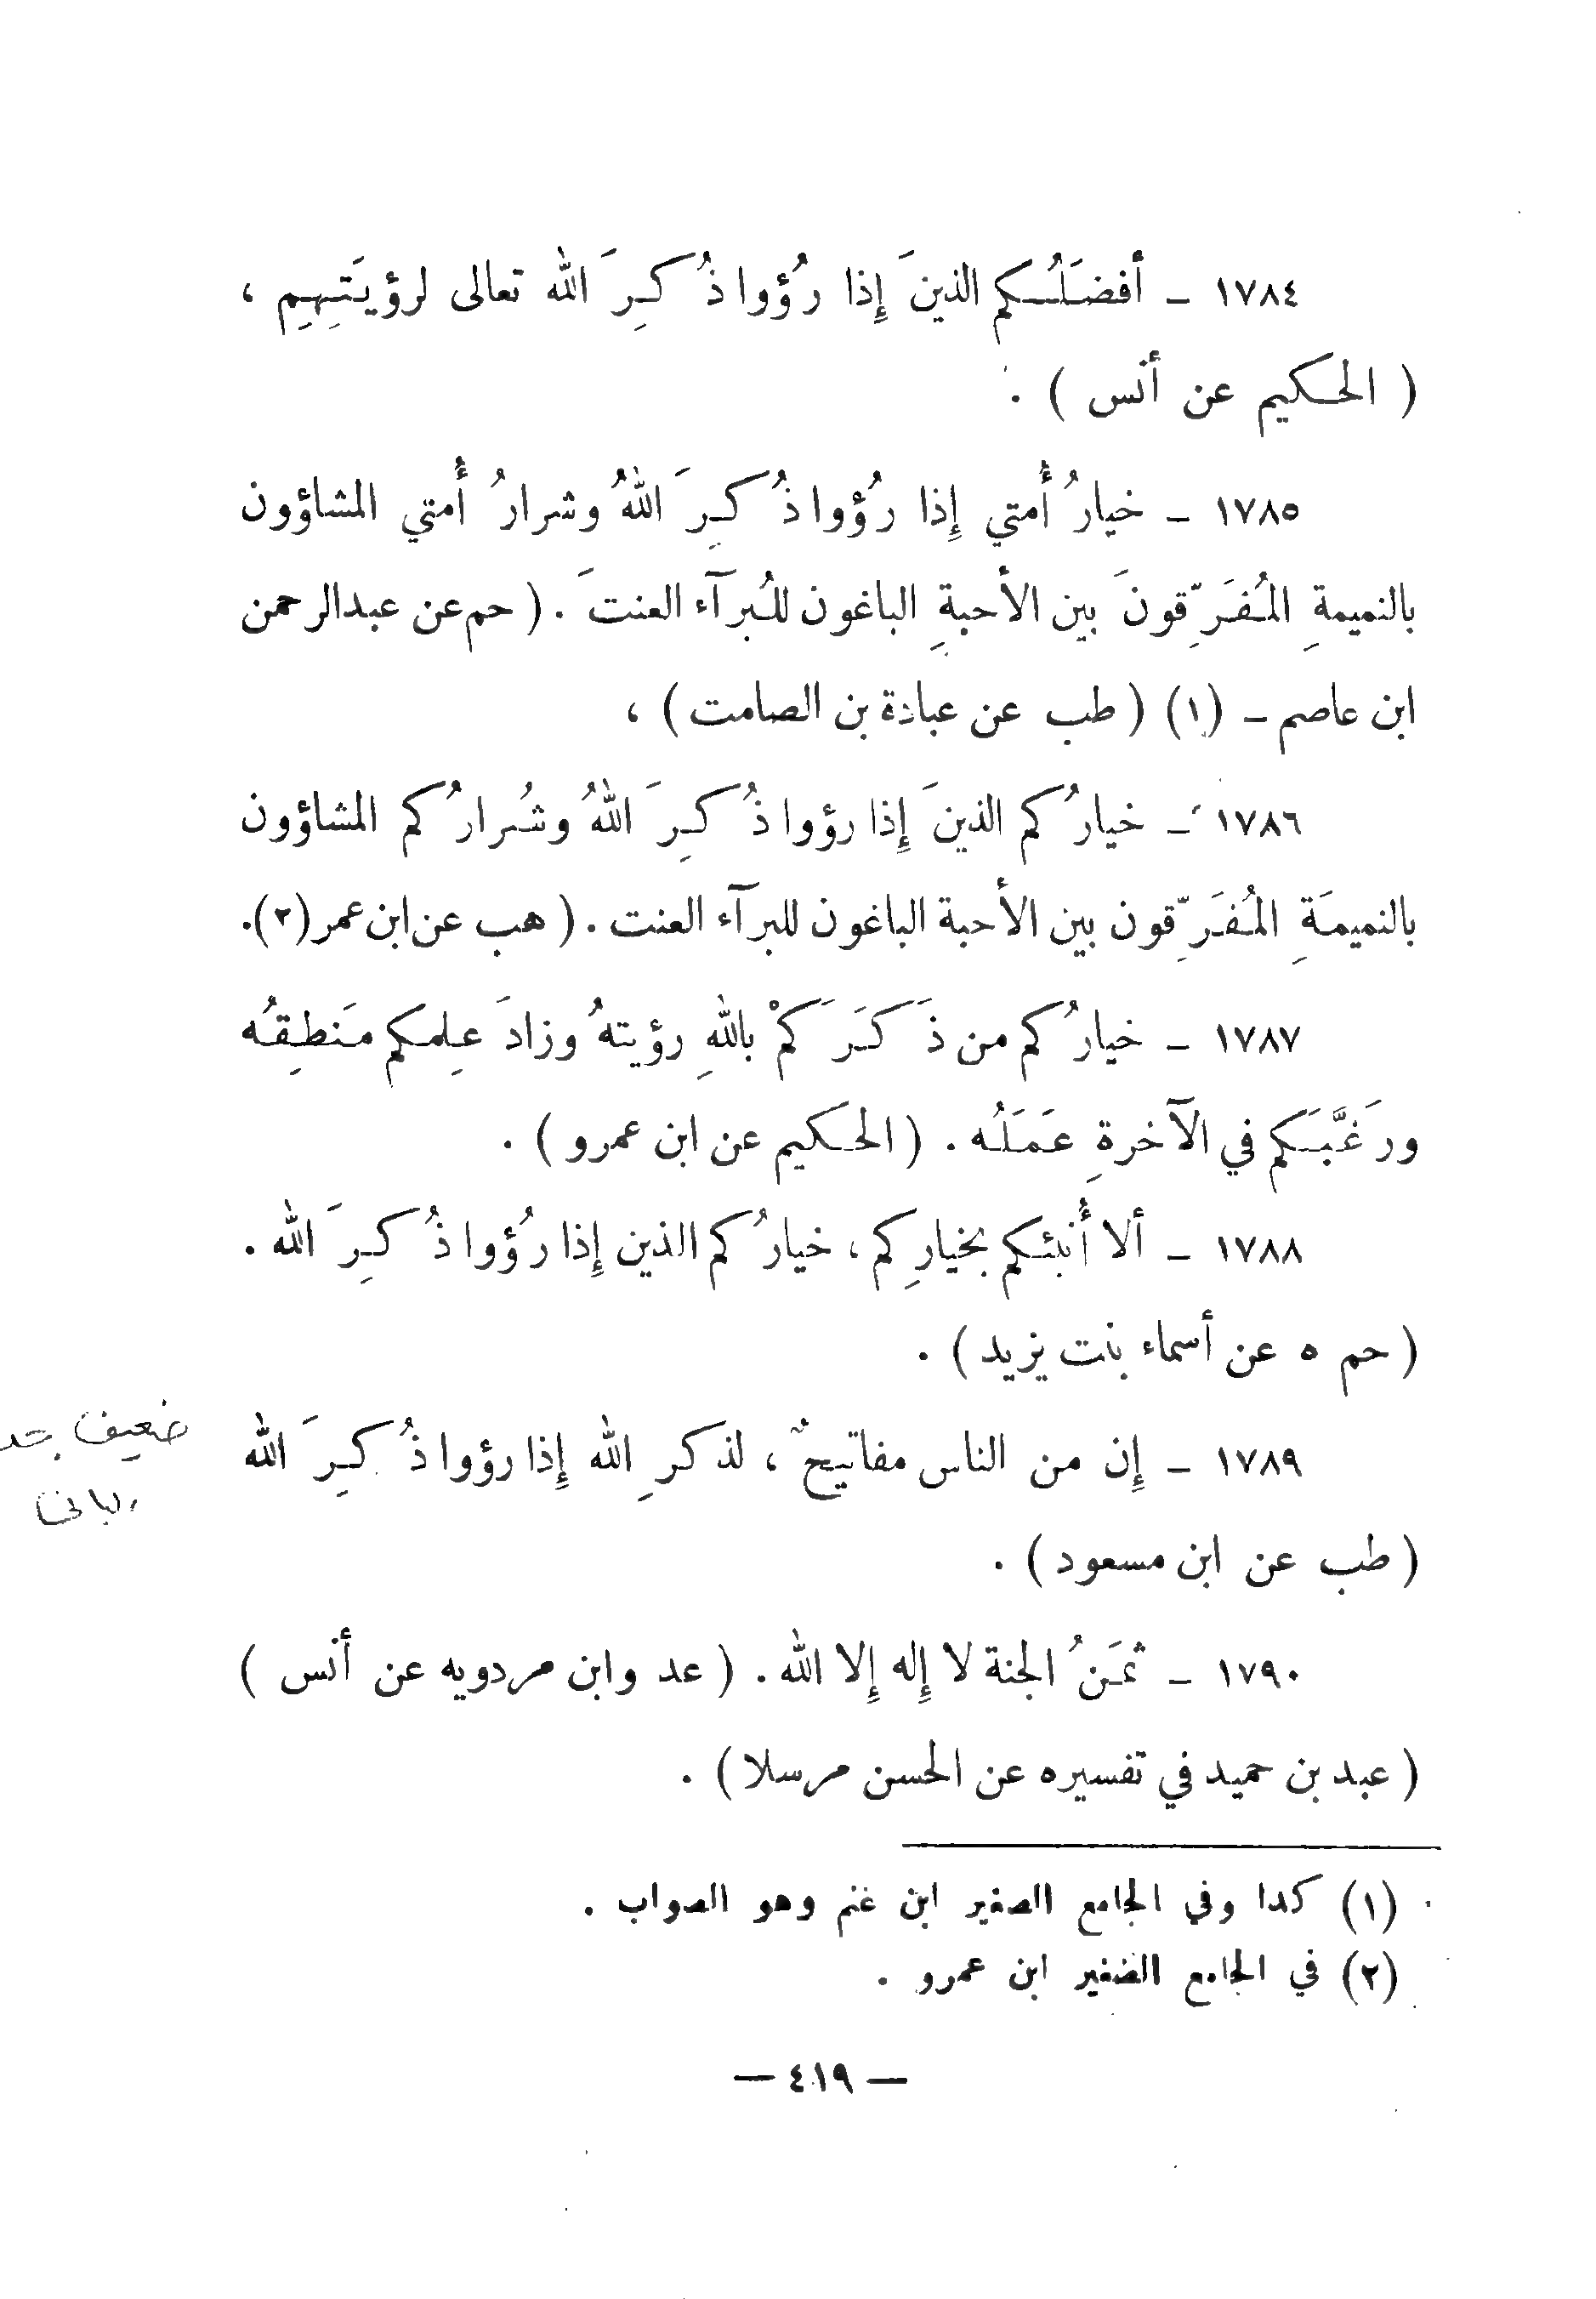 ١٧٨٤ ـ أفضَلُكم الذينَ إِذا رُؤوا ذُكِرَ الله تعالى لرؤيَتِهِم ،
( الحكيم عن أنس ) .
١٧٨٥ ـ خيارُ أُمتي إِذا رُؤوا ذُكِرَ اللهُ وشرارُ أُمتي المشاؤون
بالنميمةِ المُفَرِّقونَ بين الأحبةِ الباغون للُبرآء العنتَ . ( حم عن عبدالرحمن
ابن عاصم ـ (١) ( طب عن عبادة بن الصامت ) ،
١٧٨٦ ـ خيارُكم الذينَ إِذا رؤوا ذُكِرَ اللهُ وشُرارُكم المشاؤون
بالنميمَةِ المُفَرِّقون بين الأحبة الباغون للبرآء العنت . ( هب عن ابن عمر (٢).
١٧٨٧ ـ خيارُكم من ذَكَرَكمْ باللهِ رؤيتهُ وزادَ عِلمكم مَنطِقُه
ورَغَّبَكم في الآخرةِ عَمَلُه . ( الحكيم عن ابن عمرو ) .
١٧٨٨ ـ ألا أُنبئكم بخيارِكم ، خيارُكم الذين إِذا رُؤوا ذُكِرَ الله .
( حم ه عن أسماء بنت يزيد ) .
١٧٨٩ ـ إِن من الناس مفاتيحٌ ، لذكرِ الله إِذا رؤوا ذُكِرَ الله
ضعيف جد
( طب عن ابن مسعود ) .
١٧٩٠ ـ ثمَنُ الجنة لا إِله إِلا الله . ( عد وابن مردويه عن أنس )
( عبد بن حميد في تفسيره عن الحسن مرسلا ) .
(١) كذا وفي الجامع الصغير ابن غنم وهو الصواب .
(٢) في الجامع الضغير ابن عمرو .
— ٤١٩ —